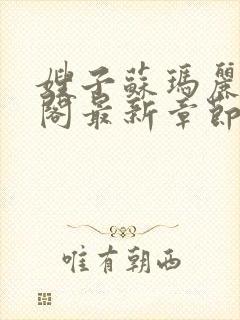 嫂子蘇瑪麗
閣最新章節
唯有朝西